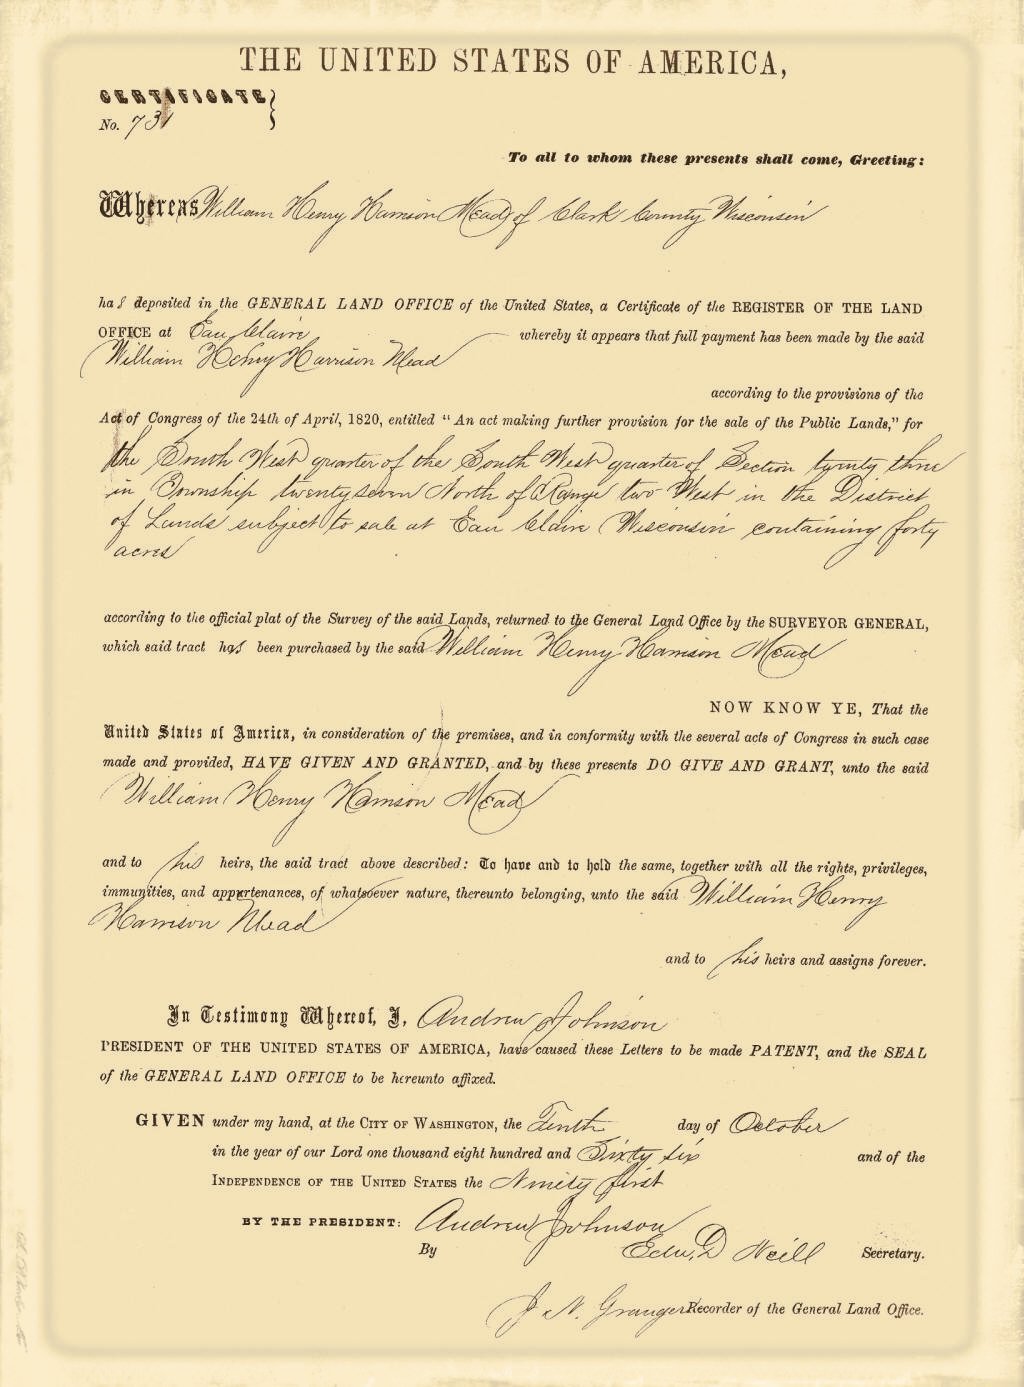 THE UNITED STATES OF AMERICA,
CERTIFICATE
No. 731
To all to whom these presents shall come, Greeting:
Whereas William Henry Harrison Mead of Clark County Wisconsin
has deposited in the GENERAL LAND OFFICE of the United States, a Certificate of the REGISTER OF THE LAND
OFFICE at Eau Claire whereby it appears that full payment has been made by the said
William Henry Harrison Mead
according to the provisions of the
Act of Congress of the 24th of April, 1820, entitled "An act making further provision for the sale of the Public Lands," for
the South West quarter of the South West quarter of Section twenty three
in Township twenty seven North of Range two West in the District
of Lands subject to sale at Eau Claire Wisconsin containing forty
acres
according to the official plat of the Survey of the said Lands, returned to the General Land Office by the SURVEYOR GENERAL,
which said tract has been purchased by the said William Henry Harrison Mead
NOW KNOW YE, That the
United States of America, in consideration of the premises, and in conformity with the several acts of Congress in such case
made and provided, HAVE GIVEN AND GRANTED, and by these presents DO GIVE AND GRANT, unto the said
William Henry Harrison Mead
and to his heirs, the said tract above described: To have and to hold the same, together with all the rights, privileges,
immunities, and appurtenances, of whatsoever nature, thereunto belonging, unto the said William Henry
Harrison Mead
and to his heirs and assigns forever.
In Testimony Whereof, I, Andrew Johnson
PRESIDENT OF THE UNITED STATES OF AMERICA, have caused these Letters to be made PATENT, and the SEAL
of the GENERAL LAND OFFICE to be hereunto affixed.
GIVEN under my hand, at the CITY OF WASHINGTON, the Tenth day of October
in the year of our Lord one thousand eight hundred and Sixty six and of the
INDEPENDENCE OF THE UNITED STATES the Ninety first
BY THE PRESIDENT: Andrew Johnson
By Edw. D Neill Secretary.
J. N. Granger Recorder of the General Land Office.